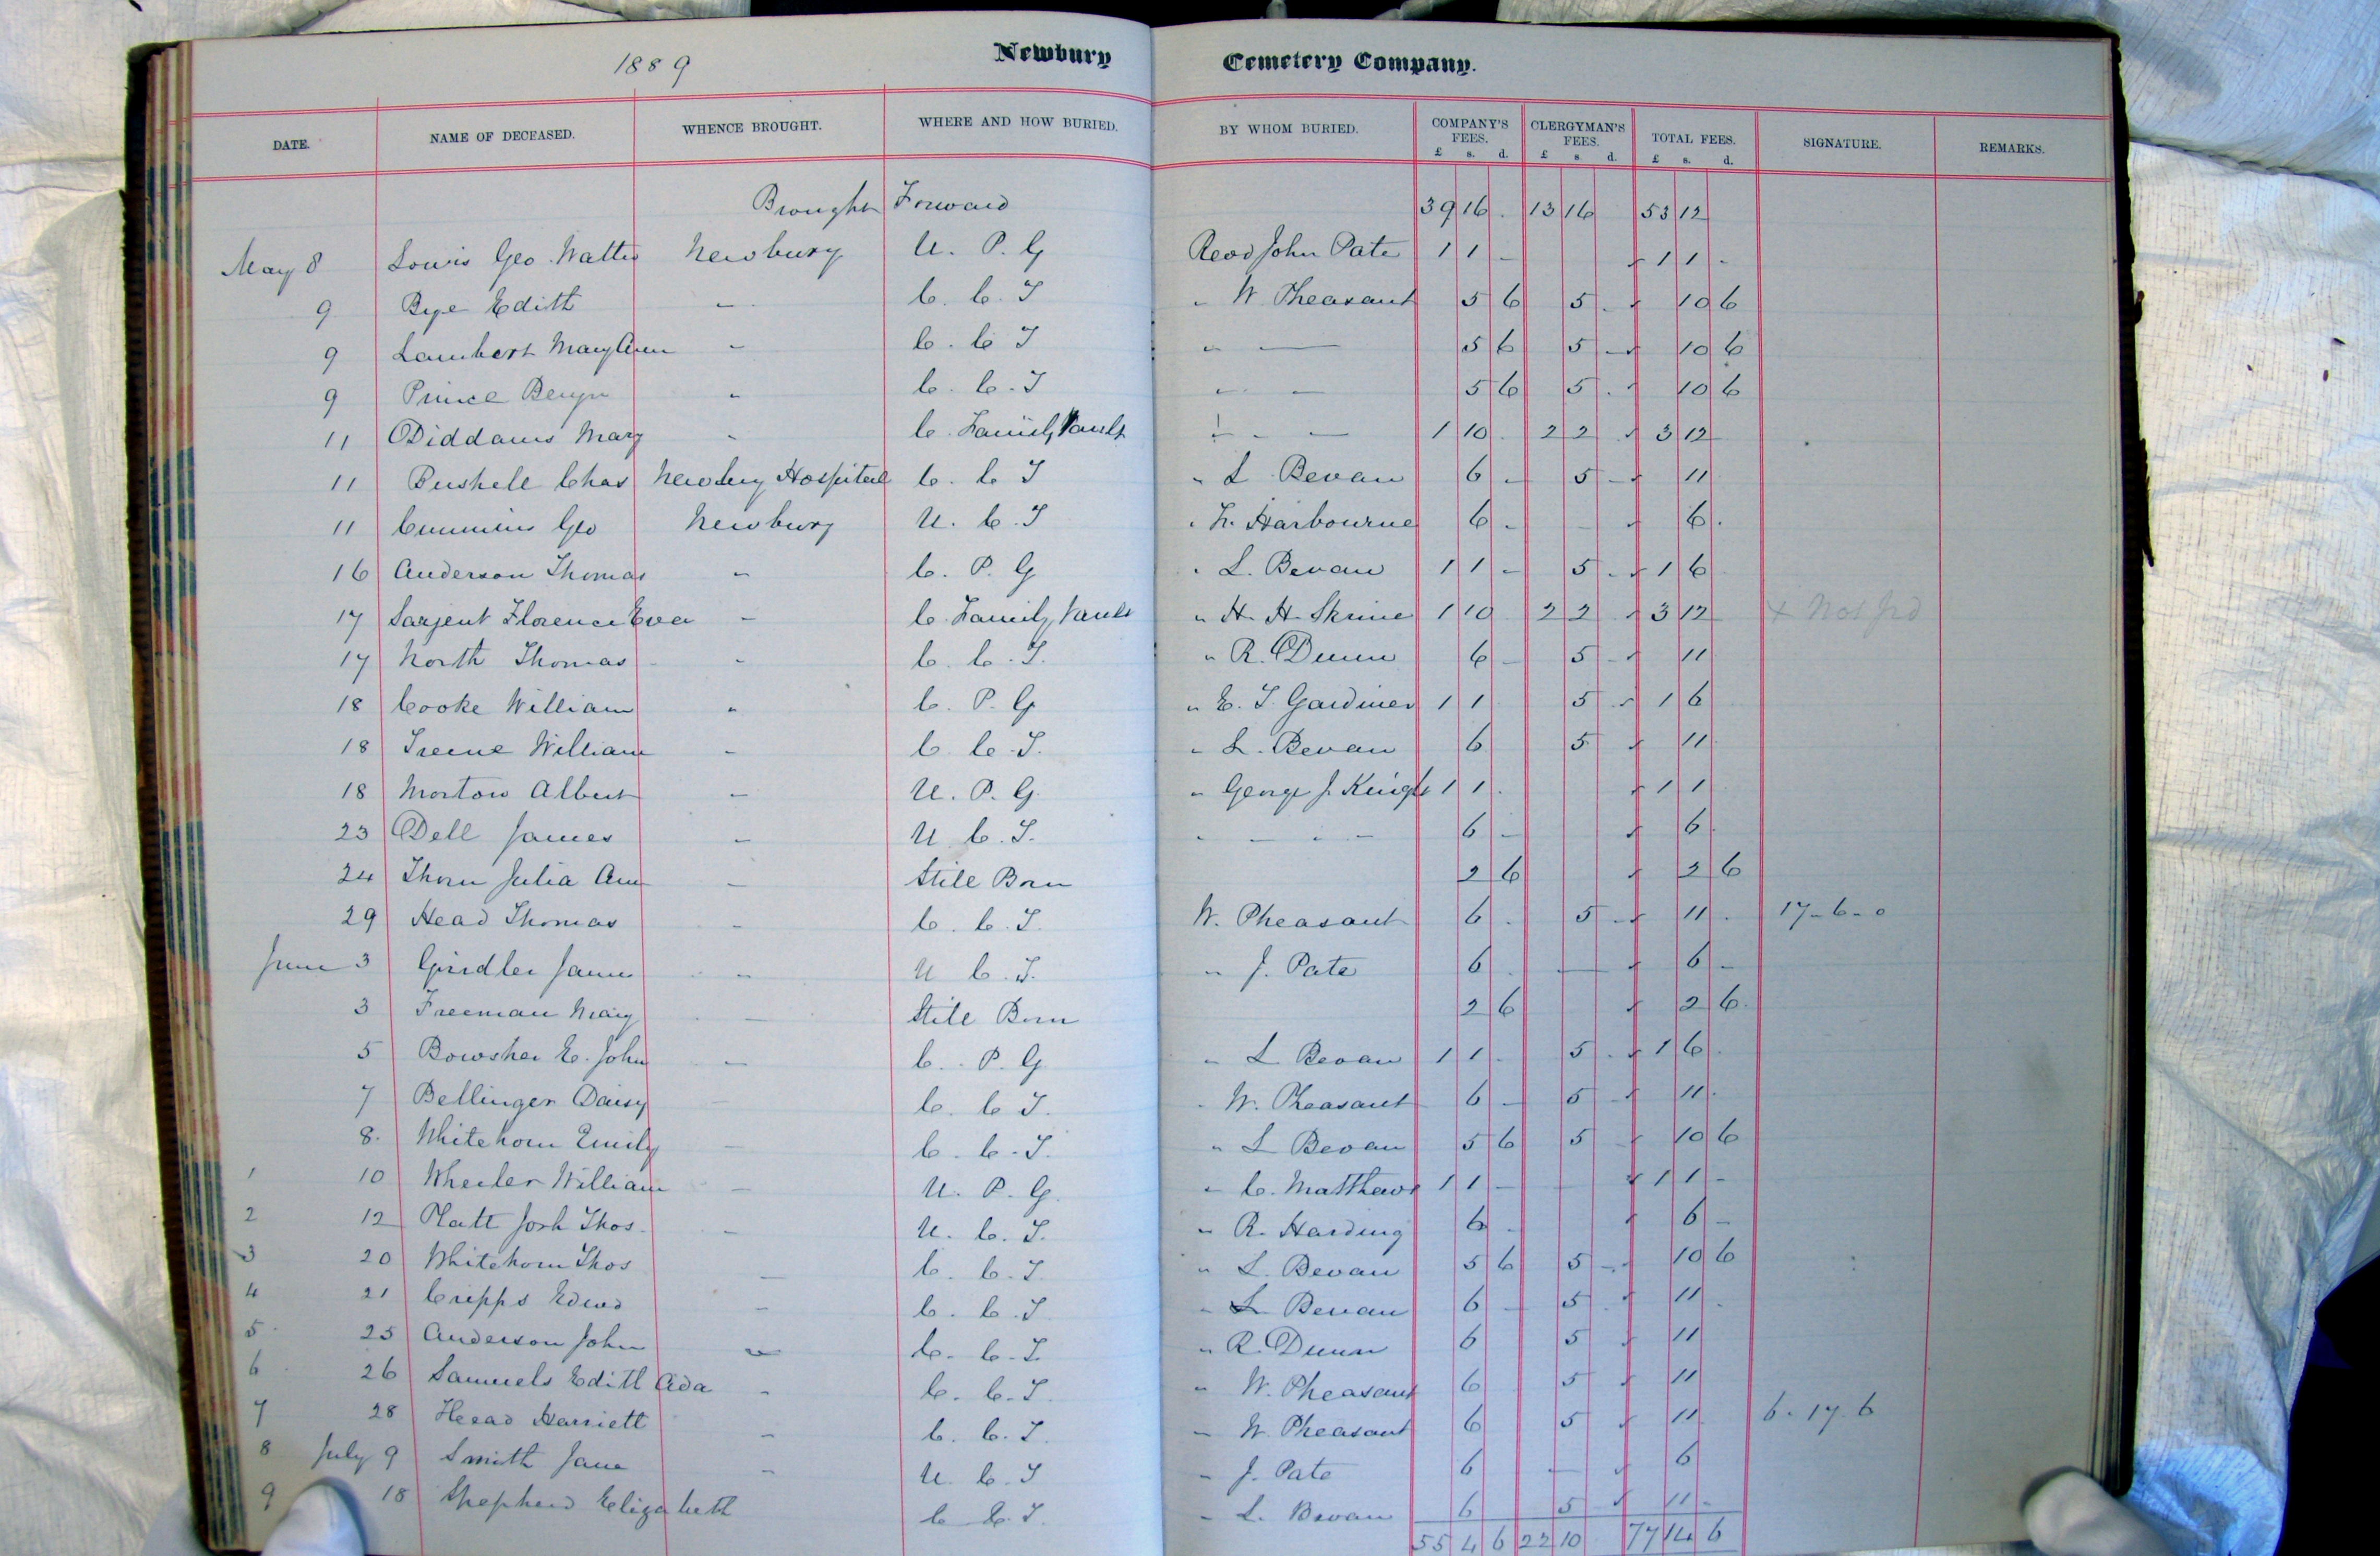 1889 Newbury Cemetery Company.
DATE. NAME OF DECEASED. WHENCE BROUGHT. WHERE AND HOW BURIED. BY WHOM BURIED. COMPANY'S FEES. £ s. d. CLERGYMAN'S FEES. £ s. d. TOTAL FEES. £ s. d. SIGNATURE. REMARKS.
Brought Forward 39 16 . 13 16 53 12
May 8 Lewis Geo. Walter Newbury U. P. G Revd John Pate 1 1 - 1 1 -
9 Bye Edith " C. C. T " W Pheasant 5 6 5 . 10 6
9 Lambert Mary Ann " C. C T " — 5 6 5 - 10 6
9 Prince Benjn " C. C. T " — 5 6 5 . 10 6
11 Diddams Mary " C. Family Vault " " — 1 10 . 2 2 3 12
11 Pushell Chas Newbury Hospital C. C T " L Bevan 6 - 5 - 11
11 Cummins Geo Newbury U. C. T " Harbourne 6 - - 6 .
16 Anderson Thomas " C. P. G " L. Bevan 1 1 - 5 . 1 6
17 Sarjent Florence Eva " C. Family Vault " H. H. Skrine 1 10 2 2 3 12 x Not pd
17 North Thomas " C. C. T. " R. Dunn 6 - 5 - 11
18 Cooke William " C. P. G " E. T. Gardiner 1 1 5 1 6
18 William " C. C. T. " L. Bevan 6 5 11
18 Morton Albert " U. P. G. " George J. Knight 1 1 . 1 1
23 Dell James " U C. T. " — " — 6 - 6
24 Thorn Julia Ann " Still Born 2 6 2 6
29 Head Thomas " C. C. T. W. Pheasant 6 . 5 - 11 . 17-6-0
June 3 Gindler " U C. T. " J. Pate 6 . — 6 -
3 Freeman Mary — Still Born 2 6 2 6
5 Bowsher E. John " C. P. G " L Bevan 1 1 . 5 . 1 6 .
7 Bellinger Daisy — C. C T. " W. Pheasant 6 - 5 - 11 .
8. Whitehorn Emily — C. C. T. " L Bevan 5 6 5 10 6
1 10 Wheeler William — U. P. G. " C. Matthews 1 1 - - 1 1 -
2 12 Platt Josh Thos. — U. C. T. " R. Harding 6 . 6 -
3 20 Whitehorn Thos — C. C. T " L. Bevan 5 6 5 - 10 6
4 21 Cripps Edwd — C. C. T " L Bevan 6 - 5 . 11 .
5 25 Anderson John " C. C. T. " R. Dunn 6 5 11
6 26 Samuels Edith Ada " C. C. T. " W. Pheasant 6 5 11
7 28 Head Harriett " C. C. T. " W. Pheasant 6 5 11 6. 17. 6
8 July 9 Smith Jane " U. C. T " J. Pate 6 — 6
9 18 Shepherd Elizabeth C C. T. " L. Bevan 6 5 11 -
55 4 6 22 10 77 14 6